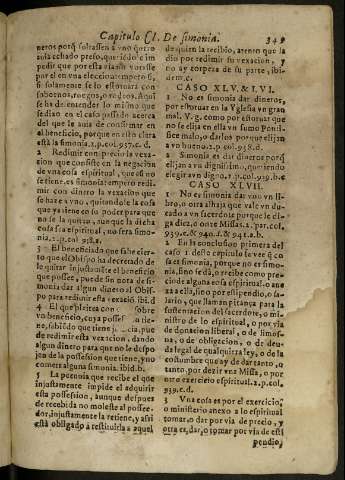 Capitulo CI. De simonia. 349
neros porq̃ soltassen a vno q̃ otro
auia echado preso, queriédole im
pedir que por esta via no votasse
por el en vna eleccion temporesi,
si solamente se lo estoruara con
sobornos, ruegos, miedos. Aqui
se ha de entender lo mismo que
se dixo en el caso passado acerca
del que le auia de confirmar en
el beneficio, porque en esto clara
està la simonia. 2.p.col.937.c.d.
2 Redimir con precio la vexa-
cion que consiste en la negacion
de vna cosa espiritual, que aũ no
se tiene, es simonia: empero redi-
mir con dinero la vexacion que
se haze a vno, quitandole la cosa
que ya tiene en su poder para que
no se la quiten, aunque la dicha
cosa sea espiritual, no sera simo-
nia. 2.p.col.938.a.
3 El beneficiado que sabe cier-
to que el Obispo ha decretado de
le quitar injustaméte el beneficio
que possee, puede sin nota de si-
monia dar algun dinero al Obis-
po para redimir esta vexació ibi.d
4 El que pleitea con sobre
vn beneficio, cuya possessiō tie-
ne, sabiédo que tiene justicia, pue
de redimir esta vexacion, dando
algun dinero para que no le despo
jen de la possession que tiene, y no
comete alguna simonia. ibid.b.
5 La pecunia que recibe el que
injustamente impide el adquirir
esta possession, aunque despues
de recebida no moleste al possee-
dor, injustamente la retiene, y assi
està obligado a restituirla a aquel
de quien la recibio, atento que la
dio por redimir su vexacion, y
no ay torpeza de su parte, ibi-
dem.c.
CASO XLV. & LVI.
1 No es simonia dar dineros,
por estoruar en la Yglesia vn gran
mal. V. g. como por estoruar que
no se elija en ella vn sumo Ponti-
fice malo, o darlos porque elijan
a vno bueno. 2.p.col.938.d.
2 Simonia es dar dineros porq̃
elijan a vn dignissimo, queriendo
elegir vn digno, 2.p.col.939.b.c
CASO XLVII.
1 No es simonia dar vno vn li-
bro, o otra alhaja que vale vn du-
cado a vn sacerdote porque le di-
ga diez, o onze Missas. 2.par.col.
939.c. & 940.f. & 941.a.b.
2 En la conclusion primera del
caso 1. deste capitulo se vee q̃ co
sa es simonia, porque no es simo-
nia, sino dá, o recibe como pre-
cio de alguna cosa espiritual, o ane
xa a ella, sino por estipendio, o sa-
lario, que llaman pitança para la
sustentacion del sacerdote, o mi-
nistro de lo espiritual, o por via
de donacion liberal, o de limos-
na, o de obligacion, o de deu-
da legal de qualquiera ley, o de la
costumbre que ay de dar tanto, o
tanto por dezir vna Missa, o por
otro exercicio espiritual. 2.p.col.
939.c.d.
3 Vna cosa es por el exercicio,
o ministerio anexo a lo espiritual
tomar, o dar por via de precio, y
otra es, dar, o tomar por via de esti
pendio,